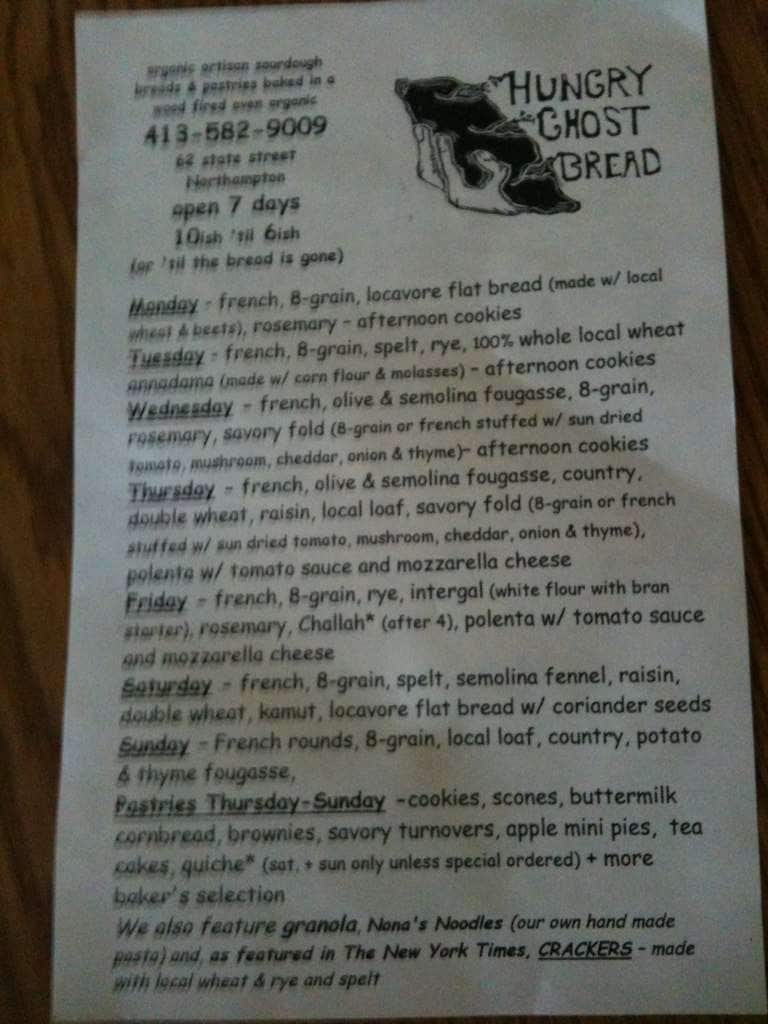 organic artisan sourdough
breads & pastries baked in a
wood fired oven organic
413-582-9009
62 state street
Northampton
open 7 days
10ish 'til 6ish
(or 'til the bread is gone)
HUNGRY
GHOST
BREAD
Monday - french, 8-grain, locavore flat bread (made w/ local
wheat & beets), rosemary - afternoon cookies
Tuesday - french, 8-grain, spelt, rye, 100% whole local wheat
annadama (made w/ corn flour & molasses) - afternoon cookies
Wednesday - french, olive & semolina fougasse, 8-grain,
rosemary, savory fold (8-grain or french stuffed w/ sun dried
tomato, mushroom, cheddar, onion & thyme)- afternoon cookies
Thursday - french, olive & semolina fougasse, country,
double wheat, raisin, local loaf, savory fold (8-grain or french
stuffed w/ sun dried tomato, mushroom, cheddar, onion & thyme),
polenta w/ tomato sauce and mozzarella cheese
Friday - french, 8-grain, rye, intergal (white flour with bran
starter), rosemary, Challah* (after 4), polenta w/ tomato sauce
and mozzarella cheese
Saturday - french, 8-grain, spelt, semolina fennel, raisin,
double wheat, kamut, locavore flat bread w/ coriander seeds
Sunday - French rounds, 8-grain, local loaf, country, potato
& thyme fougasse,
Pastries Thursday-Sunday -cookies, scones, buttermilk
cornbread, brownies, savory turnovers, apple mini pies, tea
cakes, quiche* (sat. + sun only unless special ordered) + more
baker's selection
We also feature granola, Nona's Noodles (our own hand made
pasta) and, as featured in The New York Times, CRACKERS - made
with local wheat & rye and spelt